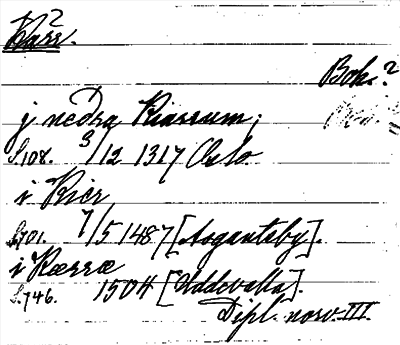 2
Karr.
Boh.?
j nedra Kiarrum;
S.108. 3/12 1317 Oslo
i Kier
S.701. 7/5 1487 [Aagautsby].
i Kærræ
S.746. 1504 [Uddevalla].
Dipl. norv. III.